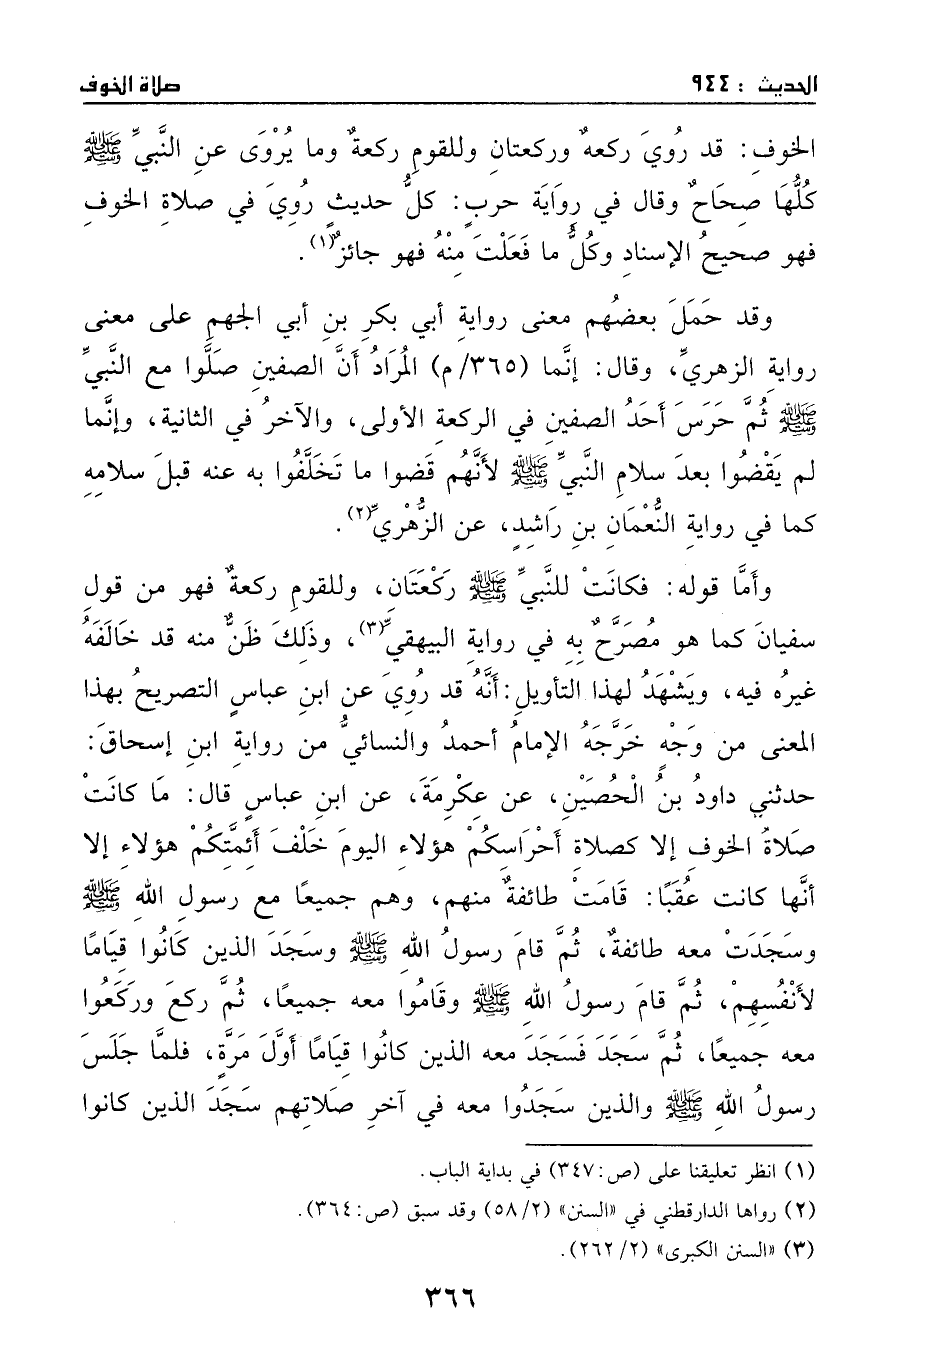 الحديث : ٩٤٤
صلاة الخوف
الخوفِ: قد رُويَ ركعةٌ وركعتانِ وللقومِ ركعةٌ وما يُرْوَى عنِ النَّبيِّ ﷺ
كُلُّهَا صِحَاحٌ وقال في رِوَايَة حربٍ: كلُّ حديثٍ رُوِيَ في صلاةِ الخوفِ
فهو صحيحُ الإسنادِ وكُلُّ ما فَعَلْتَ مِنْهُ فهو جائزٌ(١).
وقد حَمَلَ بعضُهُم معنى روايةِ أبي بكرِ بنِ أبي الجهمِ على معنى
روايةِ الزهريِّ، وقال: إنَّما (٣٦٥/م) المُرَادُ أنَّ الصفينِ صَلَّوا مع النَّبيِّ
ﷺ ثُمَّ حَرَسَ أَحَدُ الصفينِ في الركعةِ الأولى، والآخرُ في الثانيةِ، وإنَّما
لم يَقْضُوا بعدَ سلامِ النَّبيِّ ﷺ لأنَّهُم قَضوا ما تَخَلَّفُوا به عنه قبلَ سلامِهِ
كما في روايةِ النُّعْمَانِ بنِ رَاشِدٍ، عن الزُّهْرِيِّ(٢).
وأمَّا قوله: فكانَتْ للنَّبيِّ ﷺ رَكْعَتَانِ، وللقومِ ركعةٌ فهو من قولِ
سفيانَ كما هو مُصَرَّحٌ بِهِ في روايةِ البيهقيِّ(٣)، وذَلِكَ ظَنٌّ منه قد خَالَفَهُ
غيرُه فيه، ويَشْهَدُ لهذا التأويلِ: أنَّهُ قد رُويَ عن ابنِ عباسٍ التصريحُ بهذا
المعنى من وَجْهٍ خَرَّجَهُ الإمامُ أحمدُ والنسائيُّ من روايةِ ابنِ إسحاقَ:
حدثني داودُ بنُ الْحُصَيْنِ، عن عِكْرِمَةَ، عن ابنِ عباسٍ قال: مَا كانَتْ
صَلاةُ الخوفِ إلا كصلاةِ أَحْرَاسِكُمْ هؤلاءِ اليومَ خَلْفَ أئِمَّتِكُمْ هؤلاءِ إلا
أنَّها كانت عُقَبًا: قَامَتْ طائفةٌ منهم، وهم جميعًا مع رسولِ اللهِ ﷺ
وسَجَدَتْ معه طائفةٌ، ثُمَّ قامَ رسولُ اللهِ ﷺ وسَجَدَ الذين كَانُوا قِيَامًا
لأَنْفُسِهِمْ، ثُمَّ قامَ رسولُ اللهِ ﷺ وقَامُوا معه جميعًا، ثُمَّ ركعَ وركَعُوا
معه جميعًا، ثُمَّ سَجَدَ فَسَجَدَ معه الذين كانُوا قِيَامًا أَوَّلَ مَرَّةٍ، فلمَّا جَلَسَ
رسولُ اللهِ ﷺ والذين سَجَدُوا معه في آخرِ صلاتِهم سَجَدَ الذين كانوا
(١) انظر تعليقنا على (ص:٣٤٧) في بداية الباب.
(٢) رواها الدارقطني في «السنن» (٥٨/٢) وقد سبق (ص:٣٦٤).
(٣) «السنن الكبرى» (٢٦٢/٢).
٣٦٦